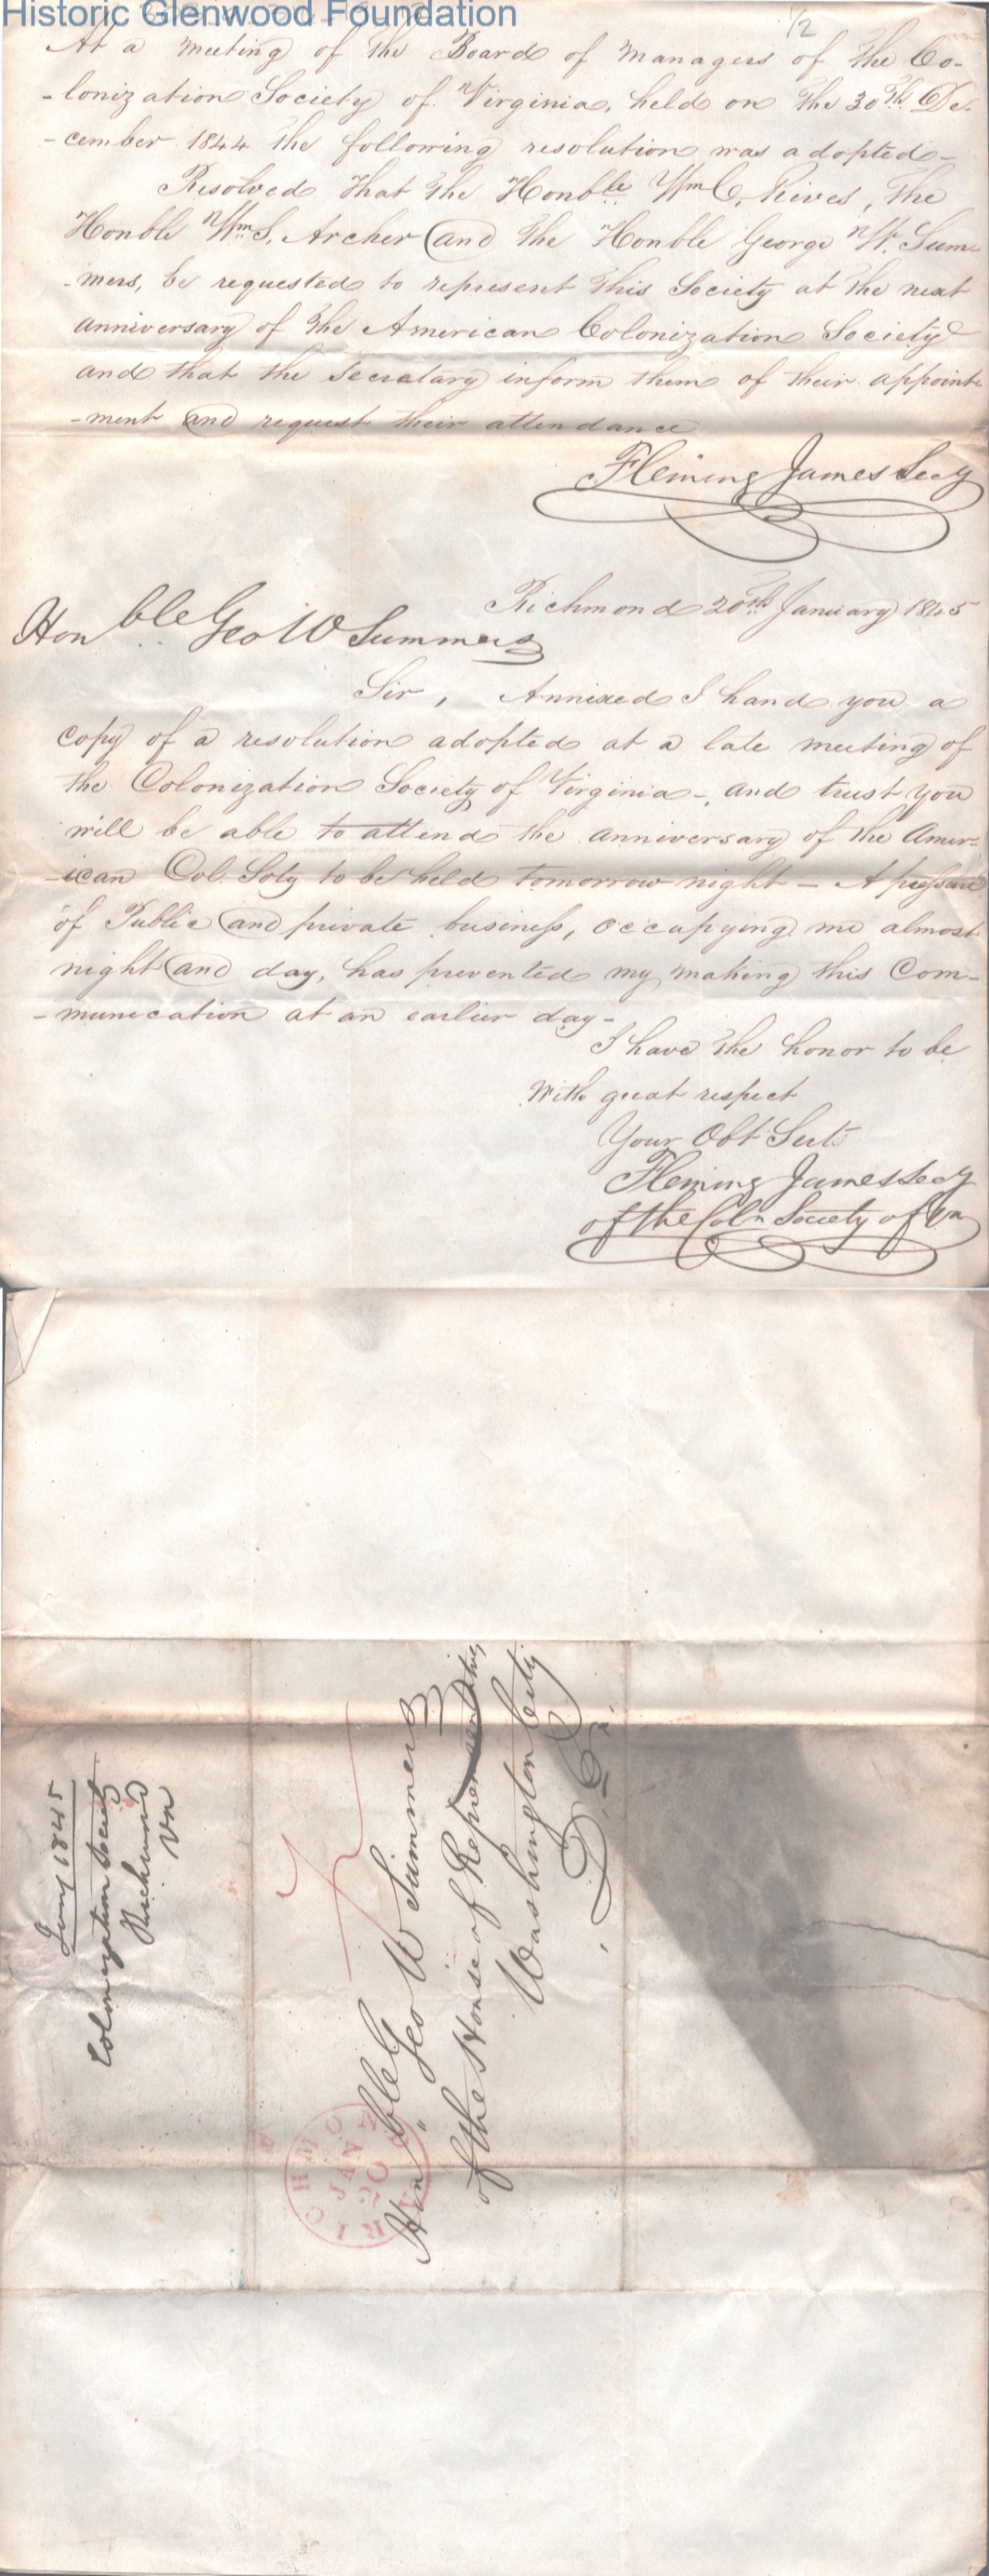 Historic Glenwood Foundation
1/2
At a meeting of the Board of Managers of the Co-
-lonization Society of Virginia, held on the 30th De-
-cember 1844 the following resolution was adopted-
Resolved that the Honble Wm C. Rives, the
Honble Wm S. Archer and the Honble George W. Sum-
-mers, be requested to represent this Society at the next
anniversary of the American Colonization Society
and that the Secretary inform them of their appoint
-ment and request their attendance
Fleming James Secy
Richmond 20th January 1845
Honble Geo W Summers
Sir, Annexed I hand you a
copy of a resolution adopted at a late meeting of
the Colonization Society of Virginia-, and trust you
will be able to attend the anniversary of the Amer-
-ican Col. Soty to be held tomorrow night - A pressure
of Public and private business, occupying me almost
night and day, has prevented my making this Com-
-munication at an earlier day-
I have the honor to be
With great respect
Your Obt Svt
Fleming James Secy
of the Coln Society of Va
Jany 1845
Colonization Society
Richmond
Va
RICHMOND Va
JAN
20
Honble Geo W Summers
of the House of Representatives
Washington City
D. Ca.